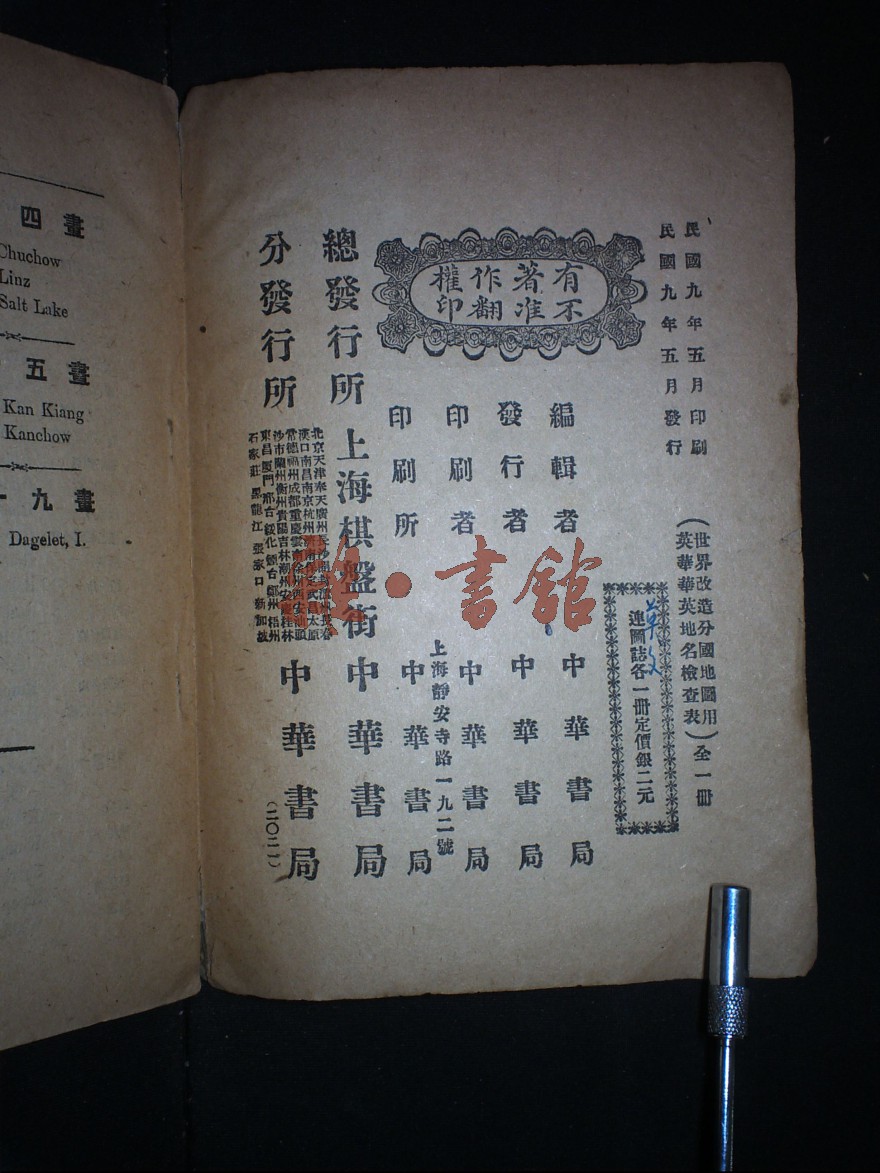 民國九年五月印刷
民國九年五月發行
（世界改造分國地圖用
英華華英地名檢查表）全一冊
連圖誌各一冊定價銀二元
有著作權
不准翻印
編輯者 中華書局
發行者 中華書局
印刷者 中華書局
上海靜安寺路一九二號
印刷所 中華書局
總發行所 上海棋盤街 中華書局
分發行所
北京天津奉天廣州
漢口南昌南京杭州
常德福州成都重慶雲南徐州西安汕頭
沙市蘭州衡州貴陽吉林潮州安慶桂林
東昌廈門邢台綏化煙台鄭州梧州
石家莊黑龍江張家口新加坡
中華書局
（二〇二一）
書舘
四畫
Chuchow
Linz
Salt Lake
五畫
Kan Kiang
Kanchow
九畫
Dagelet, I.